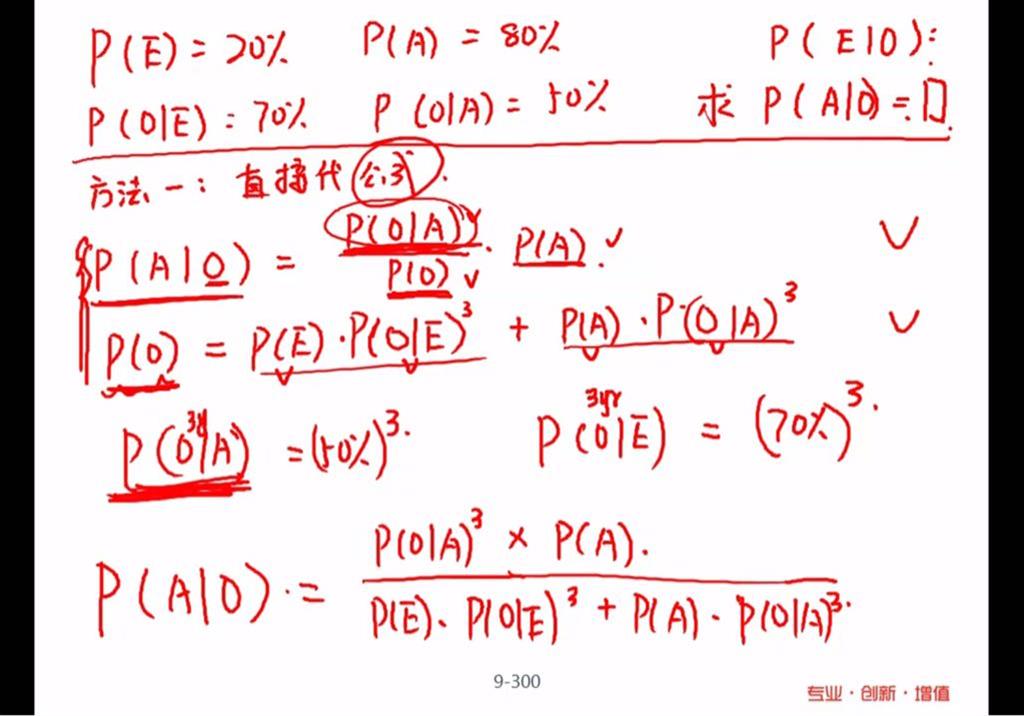 P(E) = 20% P(A) = 80% P(E|O):
P(O|E) = 70% P(O|A) = 50% 求 P(A|O) = □.
方法一: 直接代公式.
P(O|A)
P(A|O) = ——— · P(A).
P(O)
P(O) = P(E)·P(O|E)³ + P(A)·P(O|A)³
3y 3yr
P(O|A) = (50%)³. P(O|E) = (70%)³.
P(O|A)³ × P(A).
P(A|O) =
P(E)·P(O|E)³ + P(A)·P(O|A)³.
9-300
专业·创新·增值